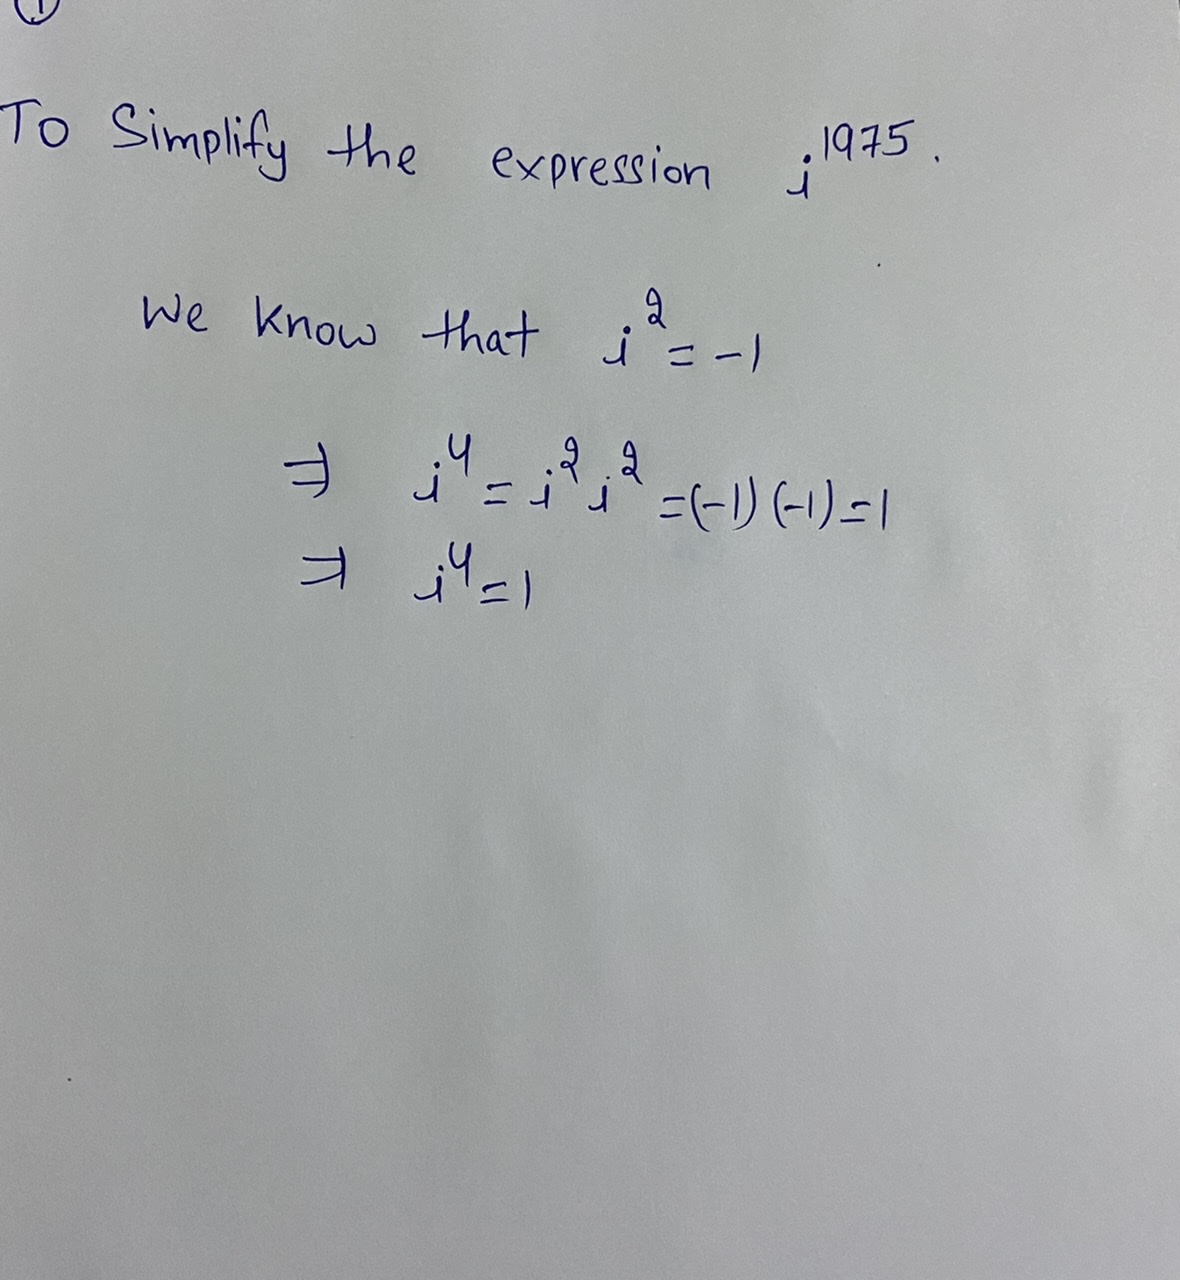 ①
To Simplify the expression i¹⁹⁷⁵.
We know that i² = -1
⇒ i⁴ = i² i² = (-1) (-1) = 1
⇒ i⁴ = 1